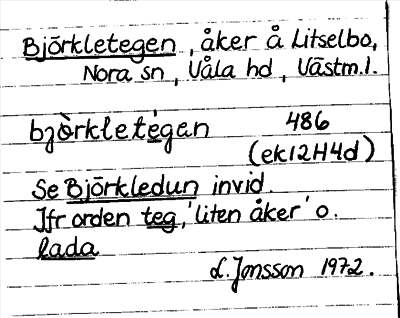 Björkletegen, åker å Litselbo,
Nora sn, Våla hd, Västm.l.
bjòrkletégan 486
(ek12H4d)
Se Björkledun invid.
Jfr orden teg, 'liten åker' o.
lada
L. Jonsson 1972.